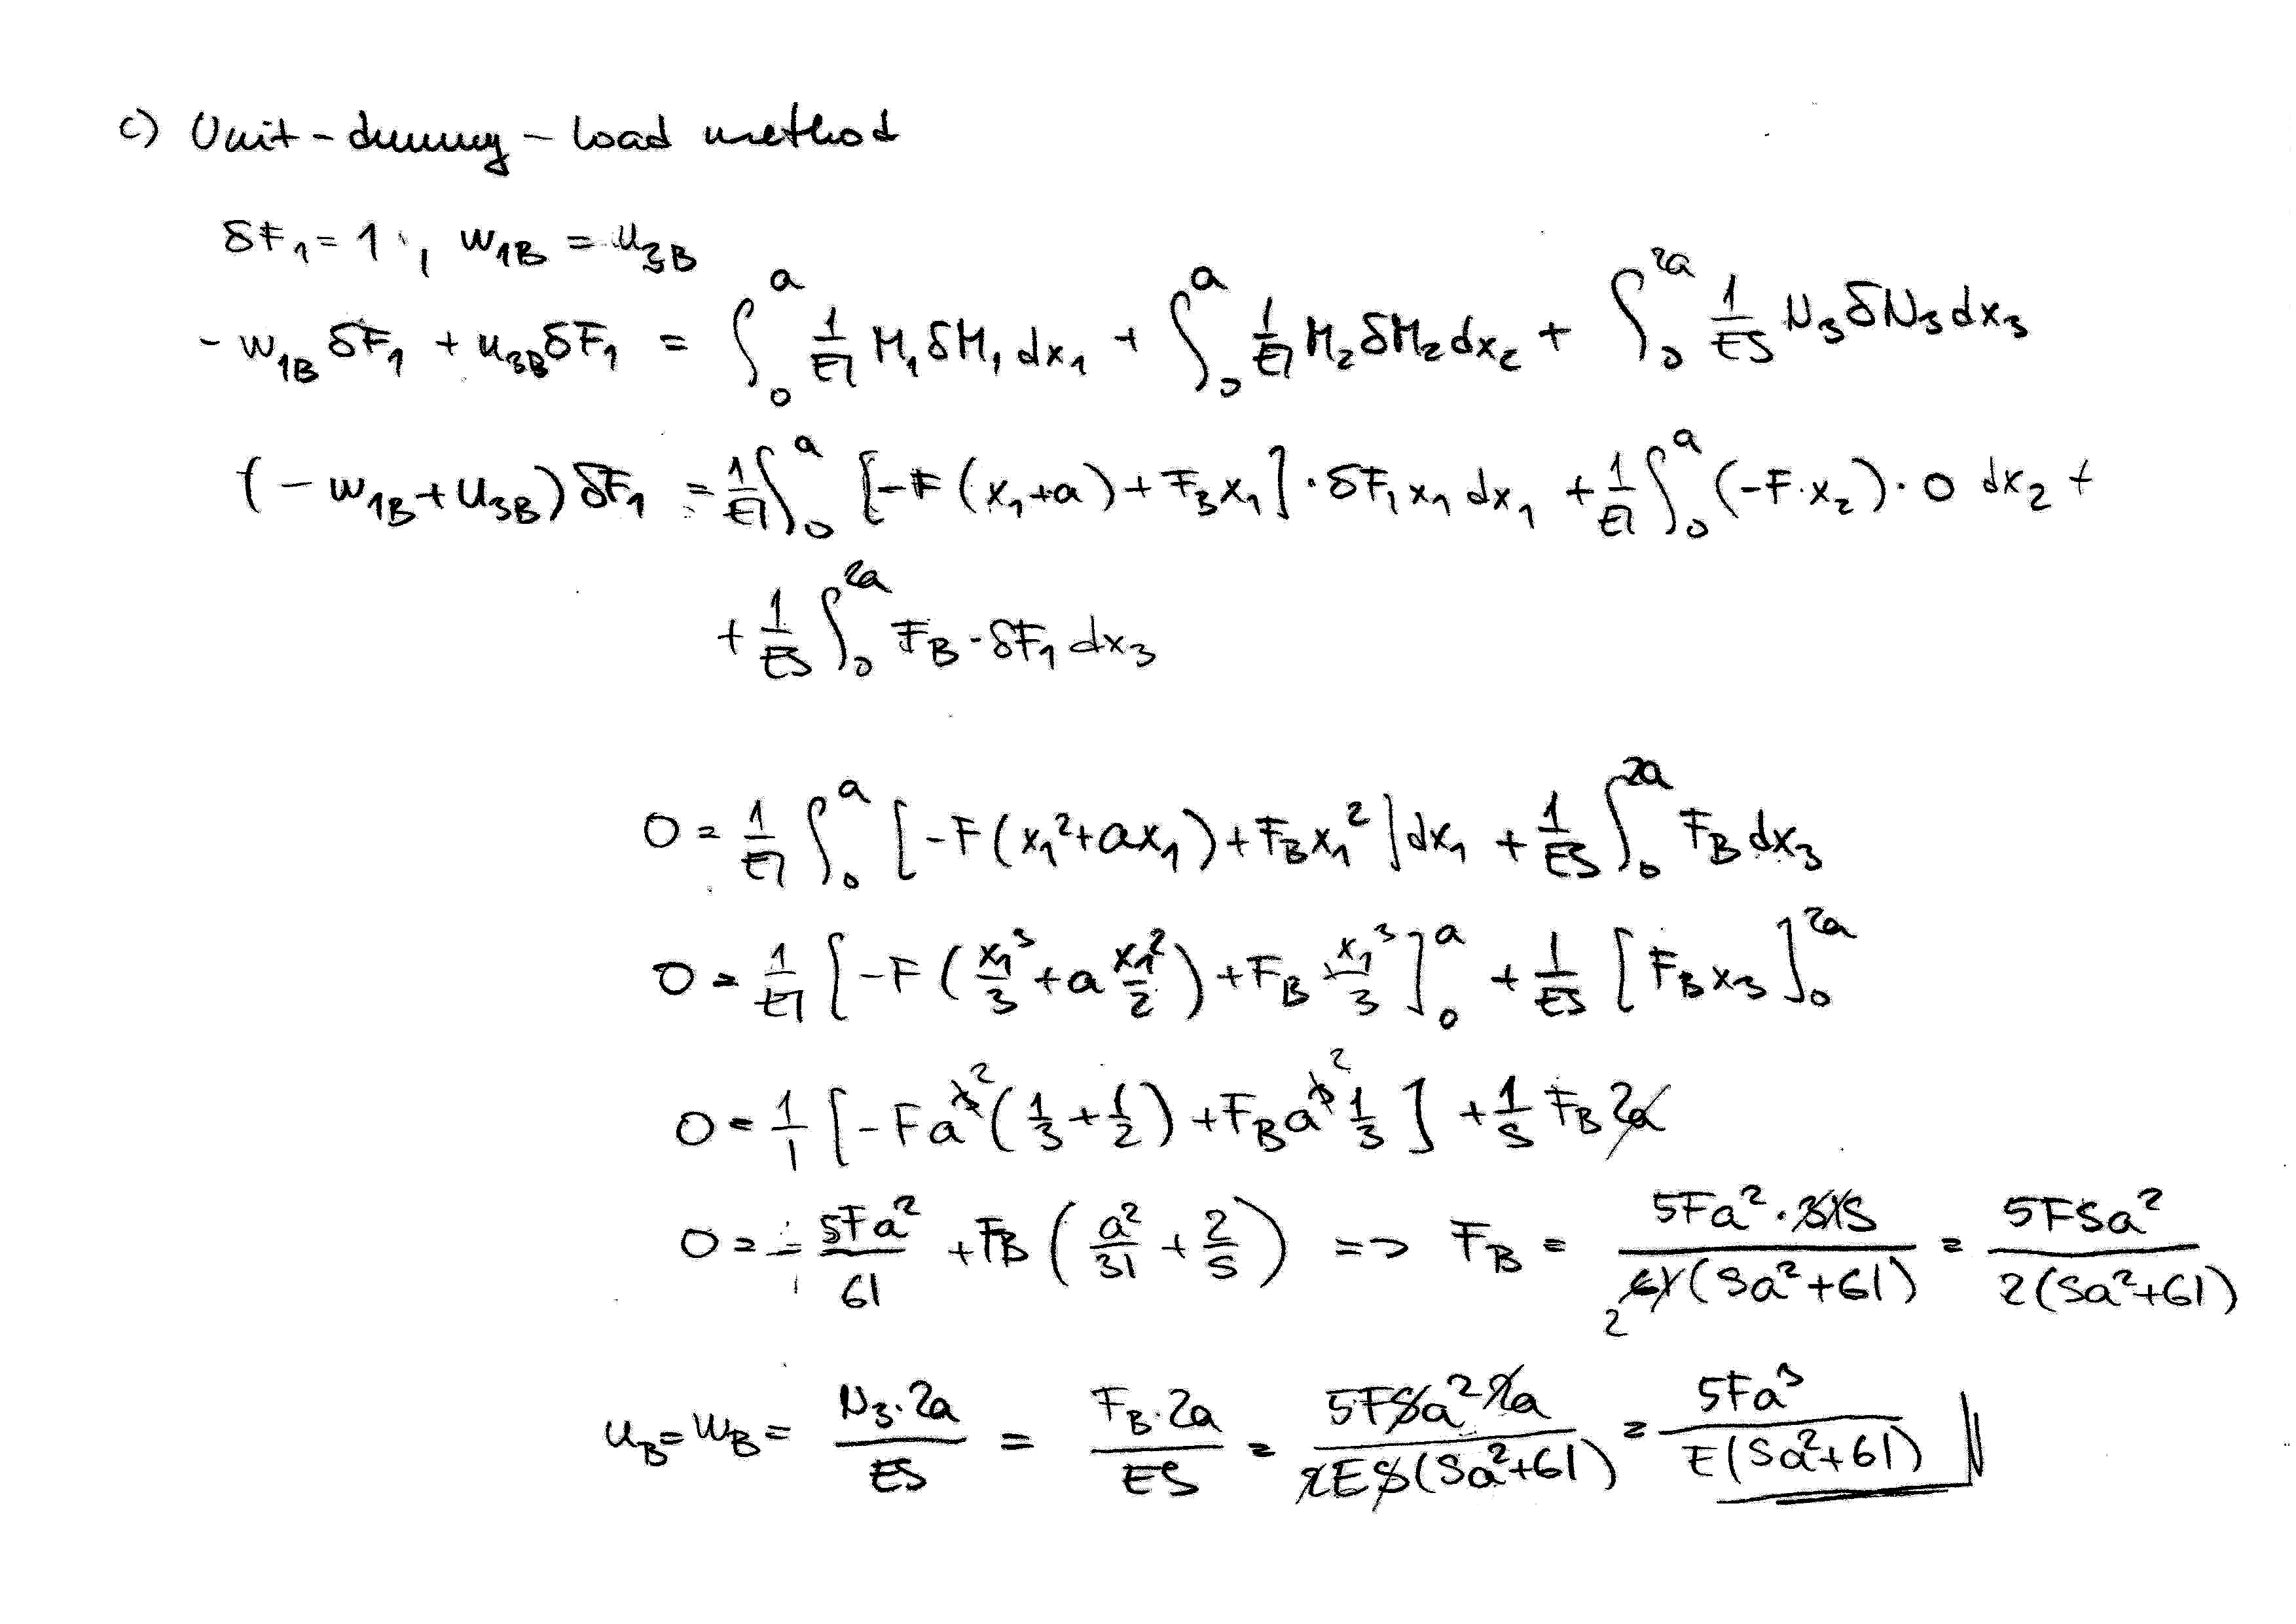 c) Unit-dummy-load method
δF₁ = 1 , w₁B = u₃B
- w₁B δF₁ + u₃B δF₁ = ∫₀ᵃ 1/EI M₁ δM₁ dx₁ + ∫₀ᵃ 1/EI M₂ δM₂ dx₂ + ∫₀²ᵃ 1/ES N₃ δN₃ dx₃
(- w₁B + u₃B) δF₁ = 1/EI ∫₀ᵃ [-F (x₁+a) + F_B x₁] · δF₁ x₁ dx₁ + 1/EI ∫₀ᵃ (-F·x₂) · 0 dx₂ +
+ 1/ES ∫₀²ᵃ F_B · δF₁ dx₃
0 = 1/EI ∫₀ᵃ [-F (x₁²+ax₁) + F_B x₁²] dx₁ + 1/ES ∫₀²ᵃ F_B dx₃
0 = 1/EI [-F (x₁³/3 + a x₁²/2) + F_B x₁³/3]₀ᵃ + 1/ES [F_B x₃]₀²ᵃ
0 = 1/I [-Fa² (1/3 + 1/2) + F_B a² 1/3] + 1/S F_B 2a
0 = - 5Fa²/6I + F_B (a²/3I + 2/S) => F_B = 5Fa²·3IS / 6I(Sa²+6I) = 5FSa² / 2(Sa²+6I)
u_B = w_B = N₃·2a/ES = F_B·2a/ES = 5FSa² 2a / 2ES(Sa²+6I) = 5Fa³ / E(Sa²+6I)